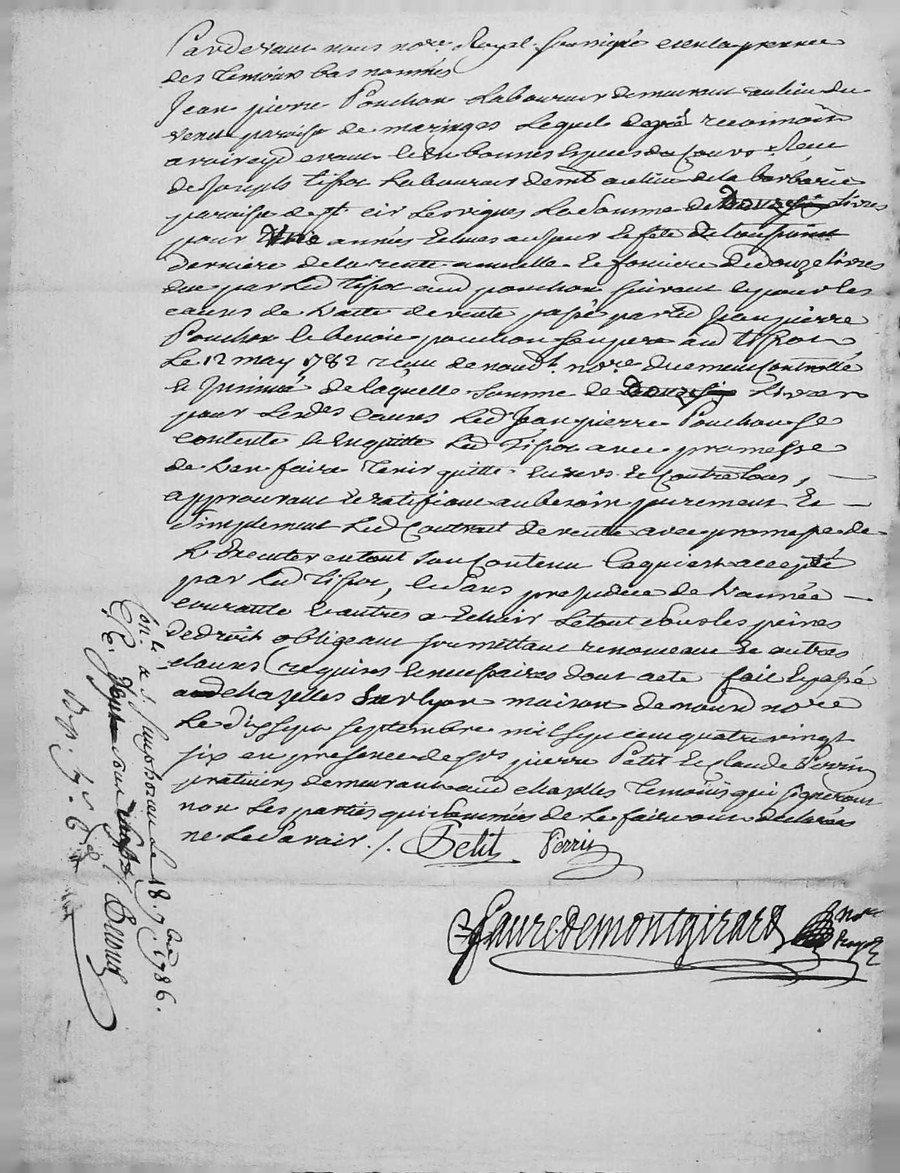 Pardevant nous nore Royal soussigné et en la presence
des temoins bas nommés
Jean pierre Ponchon Laboureur demeurant au lieu du
Venet paroisse de maringes Lequel de gré reconnoit
avoir reçu avant le in bonnes Especes du Cours Sieur
de Joseph tissot Laboureur demt au lieu de la barbarie
paroisse de st cir Les vignes La Somme de Douze livres
pour Une années Echues au jour et fête de toussaint
derniere de la rente annuelle et fonciere de douze livres
due par led tissot aud ponchon suivant et pour les
causes de Vente passé par led Jean pierre
Ponchon et benoit ponchon son pere aud tissot
Le 12 may 1782 recu de noud. nore duement Controllé
et Insinué de laquelle Somme de Douze Livres
pour Lesdes Causes Led Jean pierre Ponchon se
contente et En quitte Led tissot avec promesse
de L'en faire tenir quitte Envers et Contre tous,
approuvant et ratifiant au besoin purement Et
Simplement Led Contrat de vente avec promesse de
L'Executer en tout Son Contenu Ce qui est accepté
par Led tissot, et Sans prejudice de L'année
courante Et autres a Echoir Le tout Sous les peines
de droit obligeant soumettant renonceant Et autres
clauses requises et necessaires dont acte fait Et passé
aud chazelles Sur lyon maison de noud nore
Le dix sept Septembre mil sept cent quatre vingt
six en presence de srs pierre Petit Et Claude Perrin
praticiens demeurant aud chazelles Temoins qui signeront
non Les parties qui Sommées de Le faire ont declaré
ne Le Savoir ./. Petit Perrin
Faure demontgirard Nore
Royal
Con.lé a St. Simphorien Le 18. 7bre 1786.